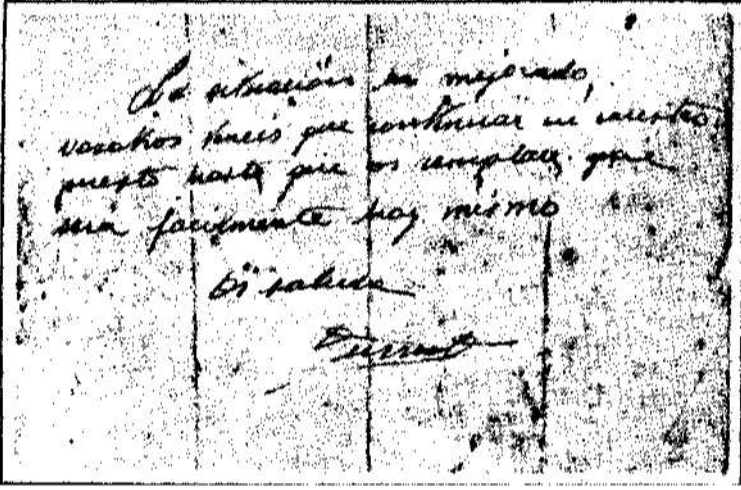 La situación ha mejorado,
vosotros teneis que continuar en vuestro
puesto hasta que os remplace, que
será facilmente hoy mismo
Os saluda